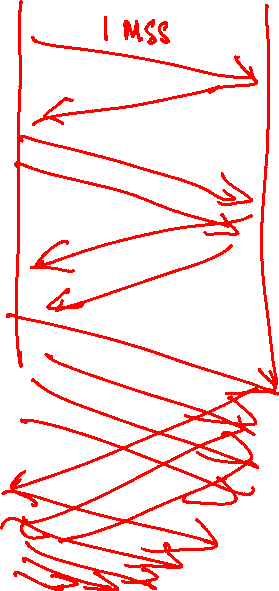 1 MSS